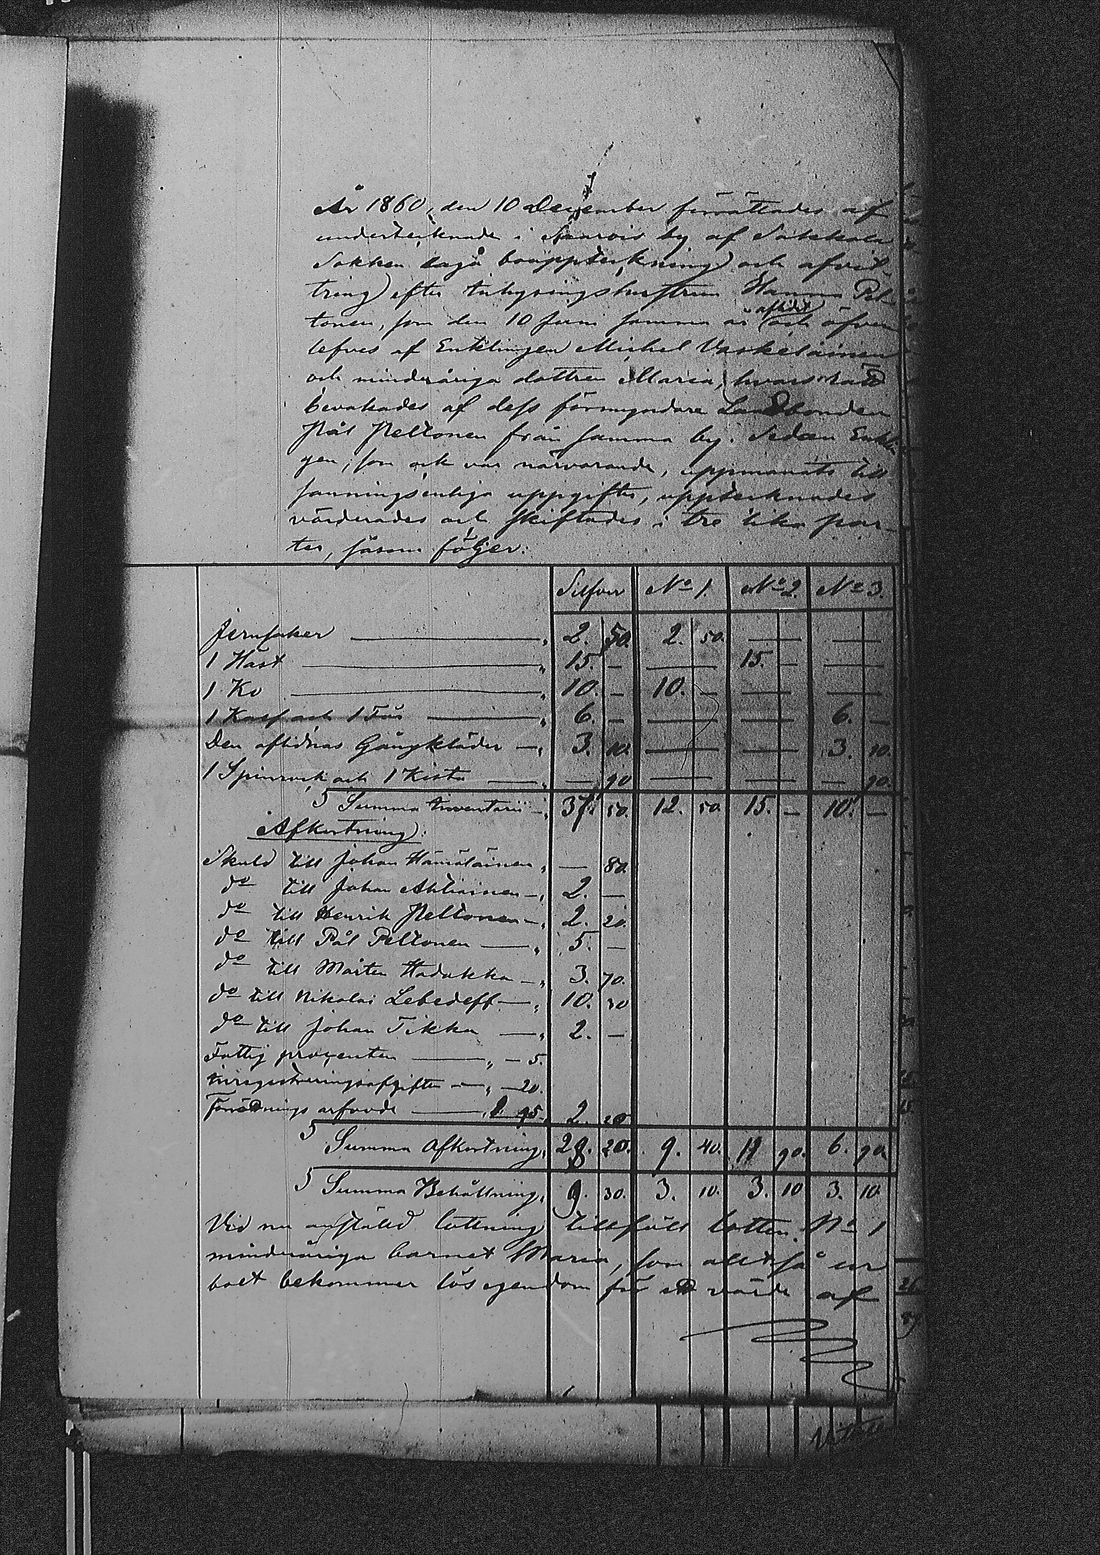 År 1860 den 10 December förrättades af
undertecknade i by af Sakkola
Sokken laga bouppteckning och afvit-
tring efter inhysingshustrun Hanna Pel-
tonen, som den 10 Juni samma år afled och öfver
lefves af Enklingen Michel Vaskelainen
och minderåriga dottren Maria, hvars rätt
bevakades af dess förmyndare Landbonden
Pål Peltonen från samma by. Sedan Enklin
gen, som ock var närvarande, uppmanats till
sanningsenliga uppgifter, upptecknades
värderades och skiftades i tre lika par-
ter, såsom följer:
Silfver No 1. No 2. No 3.
Jernsaker 2. 50. 2. 50. — —
1 Häst 15. — — 15. — —
1 Ko 10. — 10. — — —
1 Kalf och 1 Får 6. — — — 6. —
Den aflidnas Gångkläder 3. 10. — — 3. 10.
1 Spinrock och 1 Kista — 90 — — — 90.
S Summa Inventarii 37. 50. 12. 50. 15. — 10. —
Afkortning:
Skuld till Johan Hämäläinen — 80.
do till Johan Ahtiainen 2. —
do till Henrik Peltonen 2. 20.
do till Pål Peltonen 5. —
do till Mårten Hadukka 3. 70.
do till Nikolai Lebedeff 10. 30
do till Johan Tikka 2. —
Fattig procenten — 5.
Inregistreringsafgiften — 20.
Förrättnings arfvode 1. 95. 2. 20
S Summa Afkortning 28. 20. 9. 40. 11 90. 6. 90
S Summa Behållning 9. 30. 3. 10. 3. 10 3. 10.
Vid nu anställd lottning tillföll lotten No 1
minderåriga barnet Maria, som alltså ur
boet bekommer lösegendom för ett värde af